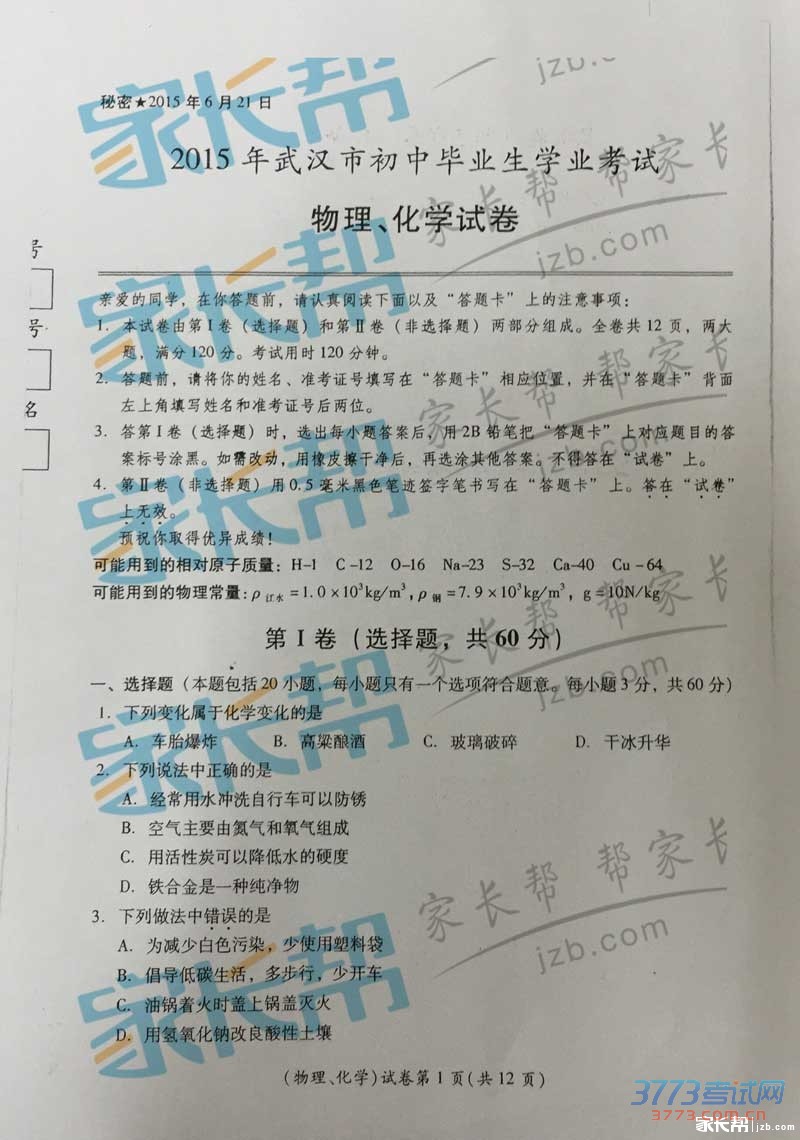 秘密★2015年6月21日
2015年武汉市初中毕业生学业考试
物理、化学试卷
号
号
名
亲爱的同学，在你答题前，请认真阅读下面以及“答题卡”上的注意事项：
1. 本试卷由第Ⅰ卷（选择题）和第Ⅱ卷（非选择题）两部分组成。全卷共12页，两大
题，满分120分。考试用时120分钟。
2. 答题前，请将你的姓名、准考证号填写在“答题卡”相应位置，并在“答题卡”背面
左上角填写姓名和准考证号后两位。
3. 答第Ⅰ卷（选择题）时，选出每小题答案后，用2B铅笔把“答题卡”上对应题目的答
案标号涂黑。如需改动，用橡皮擦干净后，再选涂其他答案。不得答在“试卷”上。
4. 第Ⅱ卷（非选择题）用0.5毫米黑色笔迹签字笔书写在“答题卡”上。答在“试卷”
上无效。
预祝你取得优异成绩！
可能用到的相对原子质量：H-1 C-12 O-16 Na-23 S-32 Ca-40 Cu-64
可能用到的物理常量：ρ江水=1.0×10³kg/m³，ρ钢=7.9×10³kg/m³，g=10N/kg
第Ⅰ卷（选择题，共60分）
一、选择题（本题包括20小题，每小题只有一个选项符合题意。每小题3分，共60分）
1. 下列变化属于化学变化的是
A. 车胎爆炸 B. 高粱酿酒 C. 玻璃破碎 D. 干冰升华
2. 下列说法中正确的是
A. 经常用水冲洗自行车可以防锈
B. 空气主要由氮气和氧气组成
C. 用活性炭可以降低水的硬度
D. 铁合金是一种纯净物
3. 下列做法中错误的是
A. 为减少白色污染，少使用塑料袋
B. 倡导低碳生活，多步行，少开车
C. 油锅着火时盖上锅盖灭火
D. 用氢氧化钠改良酸性土壤
(物理、化学)试卷第1页(共12页)
家长帮
jzb.com
家长帮 帮家长
jzb.com
家长帮
家长帮 帮家长
jzb.com
家长帮
家长帮 帮家长
jzb.com
家长帮
家长帮 帮家长
jzb.com
家长帮
3773考试网
3773.com.cn
家长帮 jzb.com